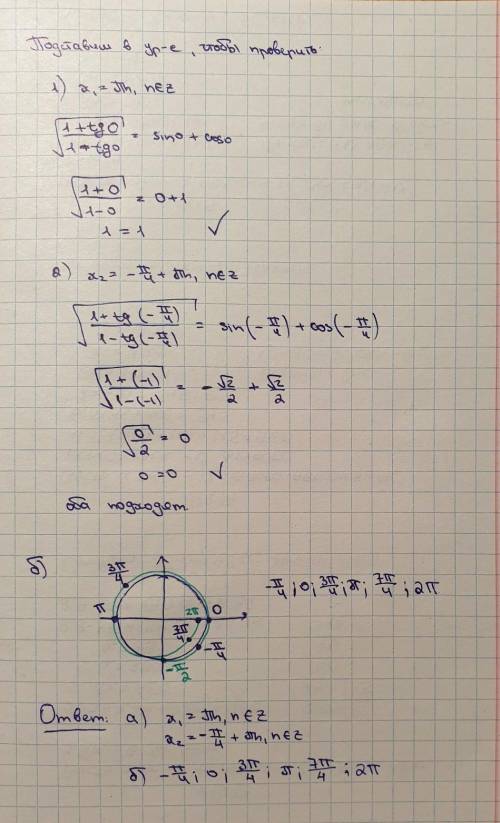 Подставим в ур-е, чтобы проверить:
1) x₁ = πn, n∈z
√((1+tg0)/(1-tg0)) = sin0 + cos0
√((1+0)/(1-0)) = 0+1
1 = 1 ✓
2) x₂ = -π/4 + πn, n∈z
√((1+tg(-π/4))/(1-tg(-π/4))) = sin(-π/4) + cos(-π/4)
√((1+(-1))/(1-(-1))) = -√2/2 + √2/2
√(0/2) = 0
0=0 ✓
оба подходят.
б)
3π/4
-π/4; 0; 3π/4; π; 7π/4; 2π
π 2π 0
7π/4
-π/4
-π/2
Ответ: а) x₁ = πn, n∈z
x₂ = -π/4 + πn, n∈z
б) -π/4; 0; 3π/4; π; 7π/4; 2π